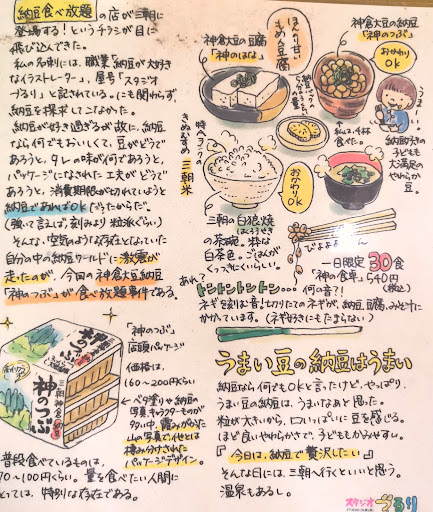 納豆食べ放題の店が三朝に
登場する！というチラシが目に
飛び込んできた。
私の名刺には、職業「納豆が大好き
なイラストレーター」、屋号「スタジオ
づるり」と記されている。にも関わらず、
納豆を探求してこなかった。
納豆が好き過ぎるが故に、納豆
なら何でもおいしくて、豆がどうで
あろうと、タレの味が何であろうと、
パッケージになされた工夫がどうで
あろうと、消費期限が切れていようと
納豆であればOKだったからだ。
(強いて言えば、刻みより粒派ぐらい)
そんな、空気のような存在となっていた
自分の中の納豆ワールドに激震が
走ったのが、今回の神倉大豆納豆
「神のつぶ」が食べ放題事件である。
神倉大豆の豆腐
「神のはな」
ほんのり甘い
もめん豆腐
神倉大豆の納豆
「神のつぶ」
おかわり
OK
うまーい
私は、4杯
食べた。
納豆好きの
子どもも
大満足の
やわらか
豆。
きぬむすめ
三朝米
おかわり
OK
三朝の白狼焼
はくろうやき
の茶碗。粋な
白茶色。ごはんが
くっつきにくいらしい。
ぴよよよーん
一日限定30食
「神の食卓」540円
(税込)
あれ？
トントントントン…
何の音？！
ネギを刻む音！切りたてのネギが、納豆、豆腐、みそ汁に
かかています。(ネギ好きにもたまらない)
「神のつぶ」
店頭パッケージ
価格は、
160〜200円くらい
ベタ塗りや納豆の
写真、キャラクターものが
多い中、霞みがかった
山の写真で、他とは
棲み分けされた
パッケージデザイン。
まめかおり
三朝神倉
神のつぶ
普段食べているものは、
70〜100円くらい。量を食べたい人間に
とっては、特別な存在である。
うまい豆の納豆はうまい
納豆なら何でもOKと言ったけど、やっぱり、
うまい豆の納豆は、うまいなあと思った。
粒が大きいから、口いっぱいに豆を感じる。
ほど良いやわらかさで、子どももかみやすい。
『今日は、納豆で贅沢したい』
そんな日には、三朝へ行くといいと思う。
温泉もあるし。
スタジオ
づるり